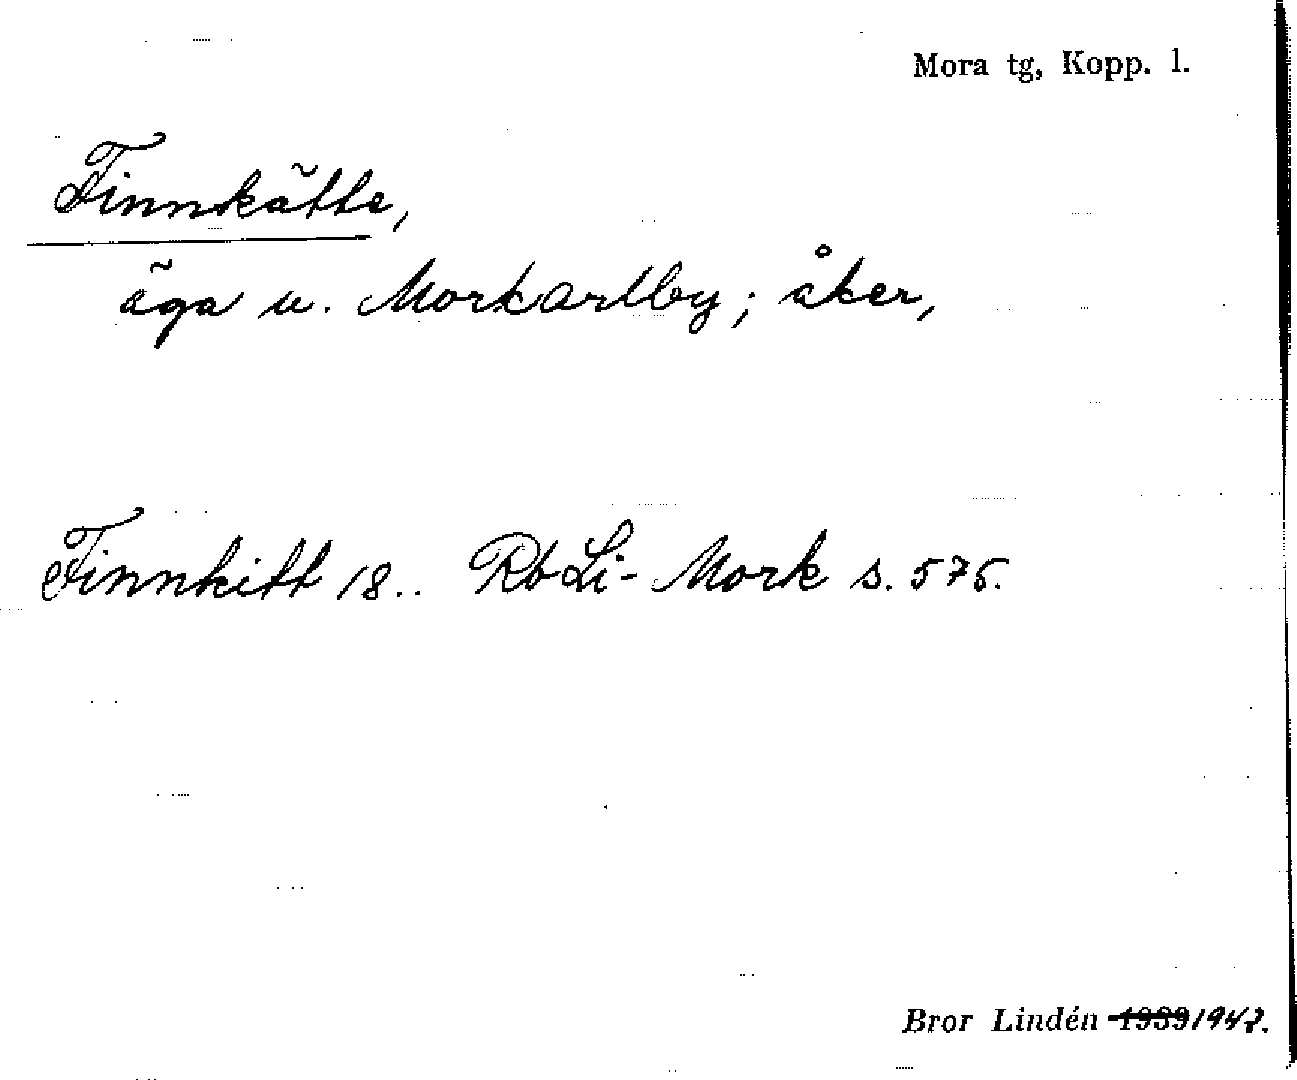 Mora tg, Kopp. l.
Finnkätte,
äga u. Morkarlby; åker,
Finnkitt 18.. Rb Li-Mork s. 575.
Bror Lindén 1939 1947.